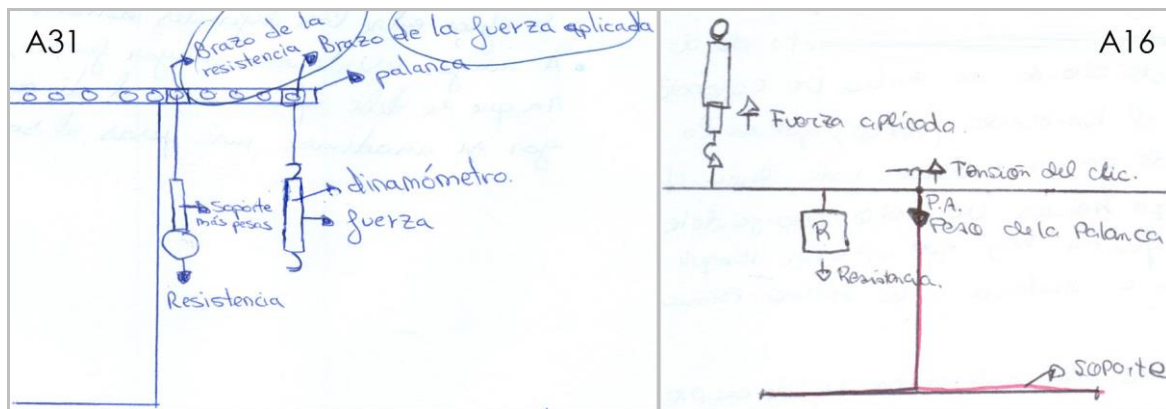 A31
Brazo de la
resistencia
Brazo de la fuerza aplicada
palanca
dinamómetro.
Soporte
más pesas
fuerza
Resistencia
A16
Fuerza aplicada.
Tensión del clic.
P.A.
Peso de la Palanca
R
Resistencia.
Soporte